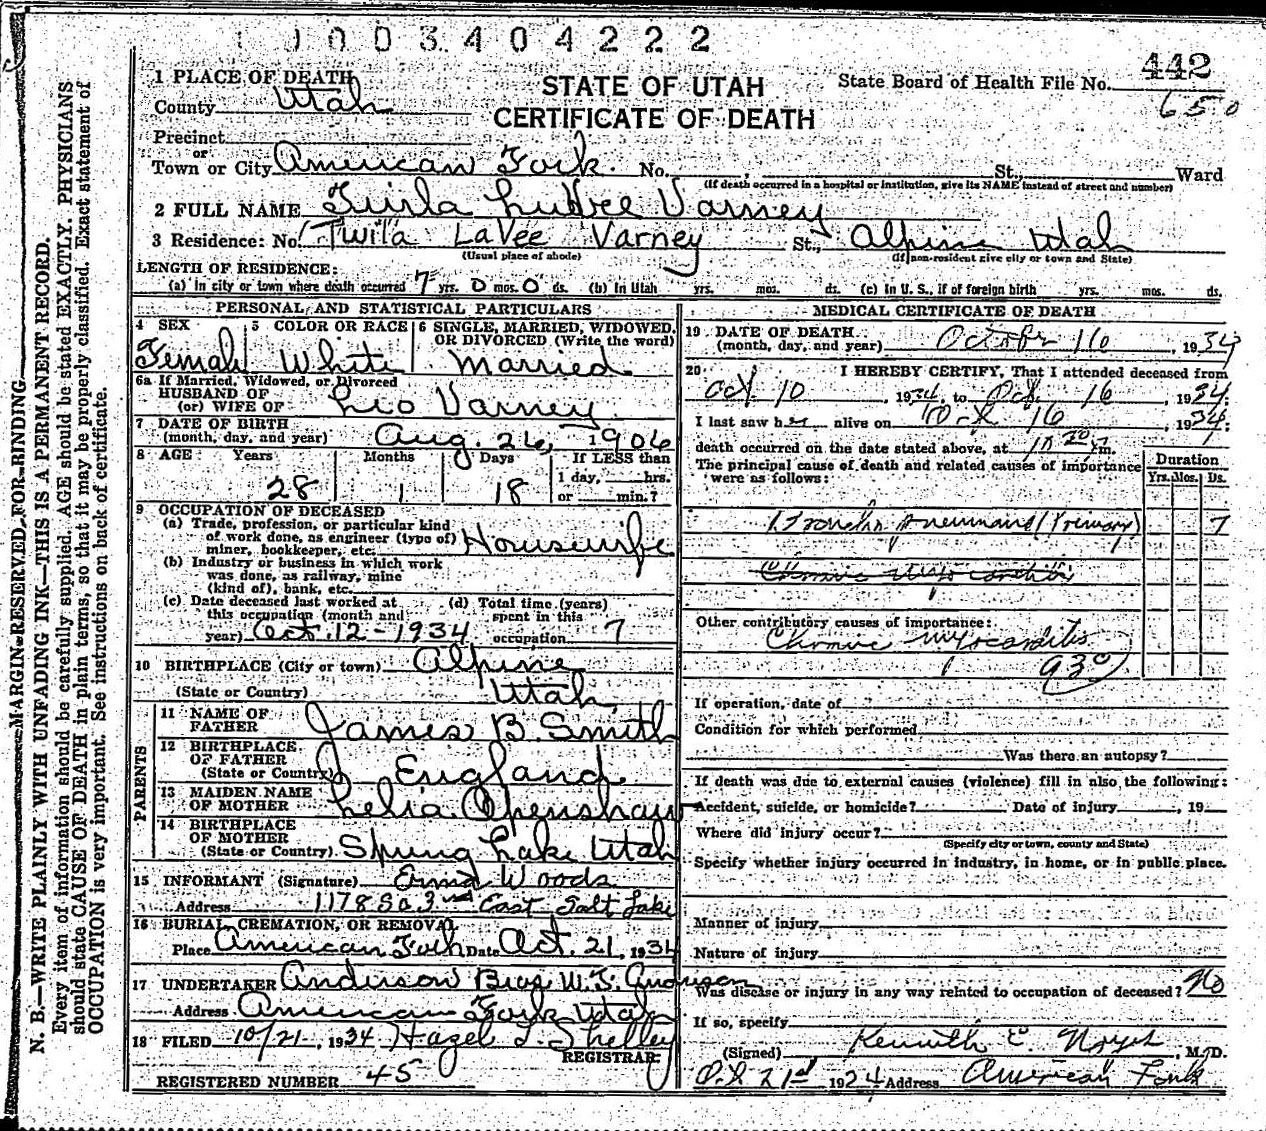 1 0 0 0 3 4 0 4 2 2 2
442
650
STATE OF UTAH
CERTIFICATE OF DEATH
State Board of Health File No.
1 PLACE OF DEATH
County Utah
Precinct
or
Town or City American Fork No. , St., Ward
(If death occurred in a hospital or institution, give its NAME instead of street and number)
2 FULL NAME Varney
3 Residence: No. Twila LaVee Varney St., Alpine Utah
(Usual place of abode) (If non-resident give city or town and State)
LENGTH OF RESIDENCE:
(a) In city or town where death occurred 7 yrs. 0 mos. 0 ds. (b) In Utah yrs. mos. ds. (c) In U. S., if of foreign birth yrs. mos. ds.
PERSONAL AND STATISTICAL PARTICULARS
4 SEX 5 COLOR OR RACE 6 SINGLE, MARRIED, WIDOWED, OR DIVORCED (Write the word)
Female White Married
6a If Married, Widowed, or Divorced
HUSBAND OF
(or) WIFE OF Leo Varney
7 DATE OF BIRTH
(month, day, and year) Aug. 26, 1906
8 AGE Years Months Days If LESS than
1 day, hrs.
28 1 18 or min.?
9 OCCUPATION OF DECEASED
(a) Trade, profession, or particular kind
of work done, as engineer (type of) Housewife
miner, bookkeeper, etc.
(b) Industry or business in which work
was done, as railway, mine
(kind of), bank, etc.
(c) Date deceased last worked at (d) Total time (years)
this occupation (month and spent in this
year) Oct. 12-1934 occupation 7
10 BIRTHPLACE (City or town) Alpine
(State or Country) Utah
PARENTS
11 NAME OF
FATHER James B. Smith
12 BIRTHPLACE
OF FATHER
(State or Country) England
13 MAIDEN NAME
OF MOTHER Lelia Openshaw
14 BIRTHPLACE
OF MOTHER
(State or Country) Spring Lake Utah
15 INFORMANT (Signature) Woods
Address 1178 So. 3rd East Salt Lake
16 BURIAL, CREMATION, OR REMOVAL
Place American Fork Date Oct. 21, 1934
17 UNDERTAKER Anderson Bros W. J. Anderson
Address American Fork Utah
18 FILED 10/21-, 1934 Hazel L. Shelley
REGISTRAR
REGISTERED NUMBER 45
MEDICAL CERTIFICATE OF DEATH
19 DATE OF DEATH
(month, day, and year) October 16, 1934
20 I HEREBY CERTIFY, That I attended deceased from
Oct 10, 1934, to Oct. 16, 1934:
I last saw her alive on Oct 16, 1934:
death occurred on the date stated above, at m.
The principal cause of death and related causes of importance
were as follows:
Duration
Yrs. Mos. Ds.
Pneumonia (Primary) 7
Chronic Myocarditis
Other contributory causes of importance:
Chronic Myocarditis
93c
If operation, date of
Condition for which performed
Was there an autopsy?
If death was due to external causes (violence) fill in also the following:
Accident, suicide, or homicide? Date of injury , 19
Where did injury occur?
(Specify city or town, county and State)
Specify whether injury occurred in industry, in home, or in public place.
Manner of injury
Nature of injury
Was disease or injury in any way related to occupation of deceased? No
If so, specify
(Signed) Kenneth E. Noyes, M. D.
Oct 21st 1934 Address American Fork
MARGIN RESERVED FOR BINDING
N. B.—WRITE PLAINLY WITH UNFADING INK—THIS IS A PERMANENT RECORD.
Every item of information should be carefully supplied. AGE should be stated EXACTLY. PHYSICIANS
should state CAUSE OF DEATH in plain terms, so that it may be properly classified. Exact statement of
OCCUPATION is very important. See instructions on back of certificate.